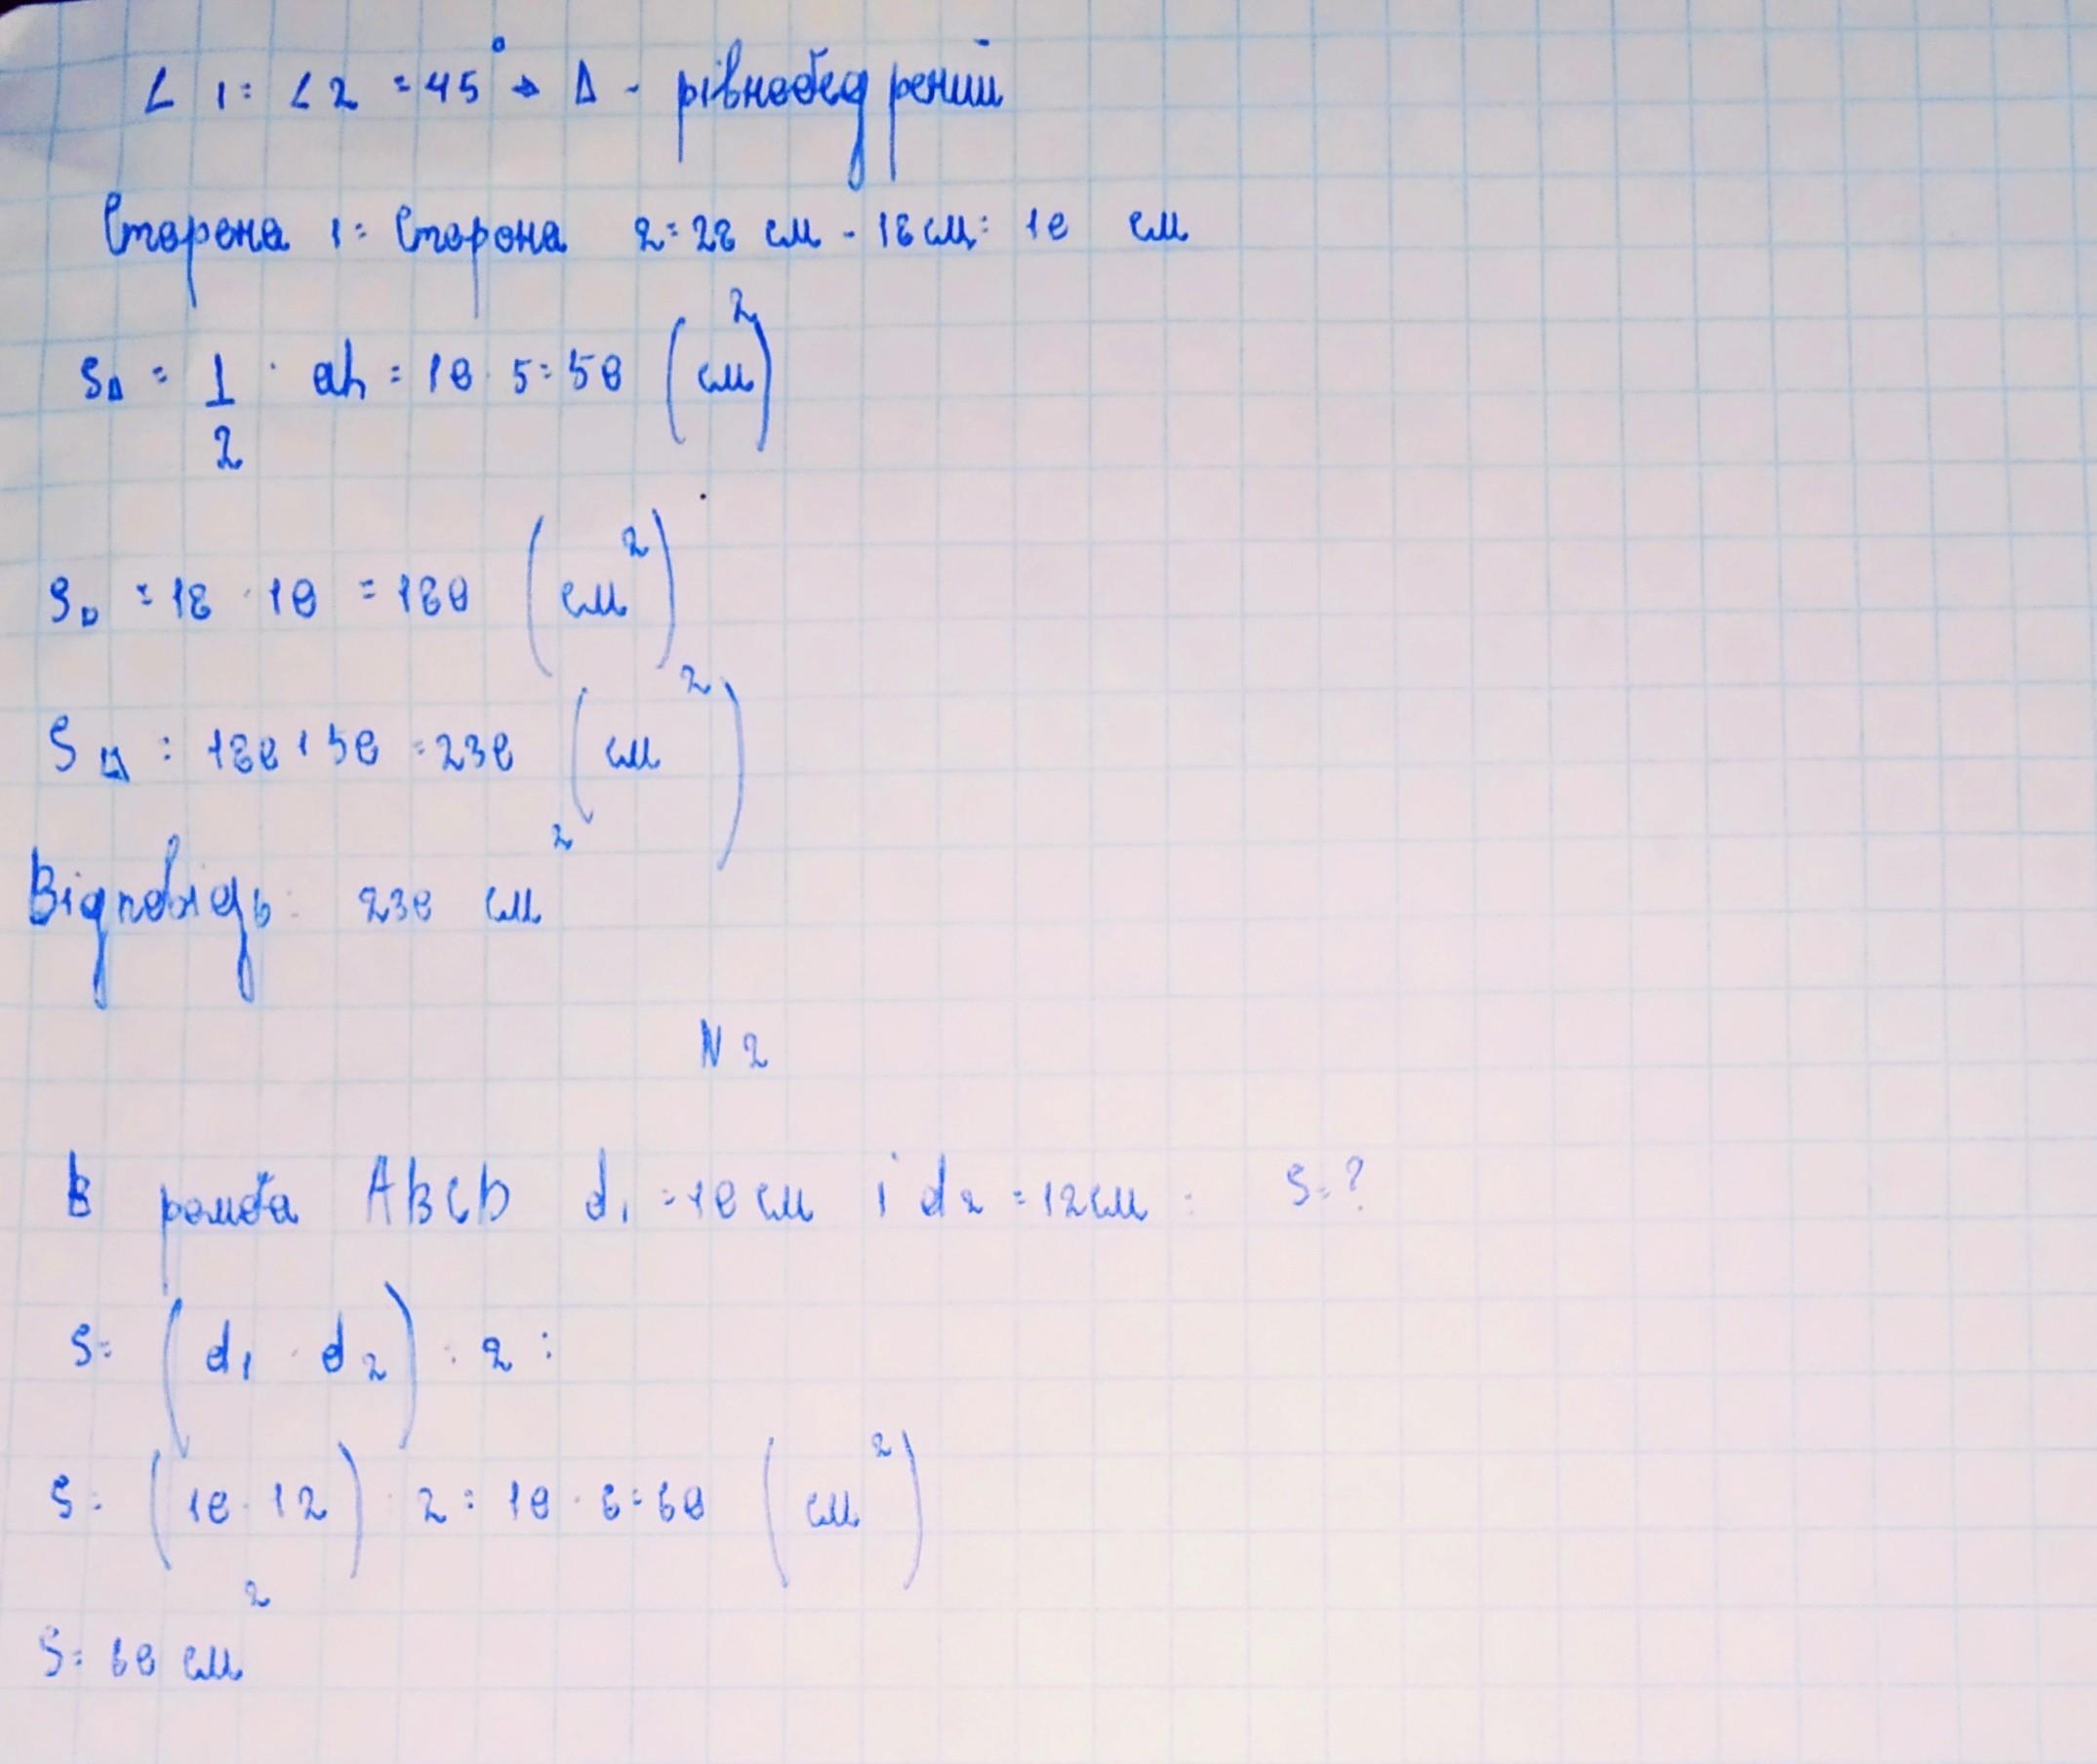 ∠ 1 = ∠ 2 = 45° → Δ - рівнобедрений
Сторона 1 = Сторона 2 = 28 см - 18 см = 10 см
S△ = 1/2 · ah = 10 · 5 = 50 (см²)
S□ = 18 · 10 = 180 (см²)
S = 180 + 50 = 230 (см²)
Відповідь: 230 см²
N 2
В ромба ABCD d₁ = 10 см і d₂ = 12 см. S = ?
S = (d₁ · d₂) : 2 =
S = (10 · 12) : 2 = 10 · 6 = 60 (см²)
S = 60 см²